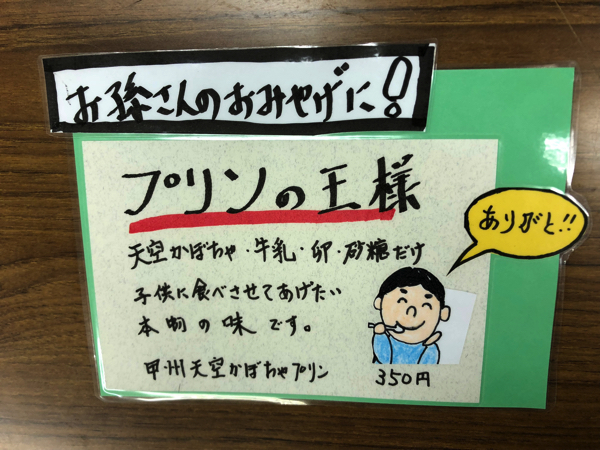 お孫さんのおみやげに!
プリンの王様
ありがと!!
天空かぼちゃ・牛乳・卵・砂糖だけ
子供に食べさせてあげたい
本物の味です。
甲州天空かぼちゃプリン
350円